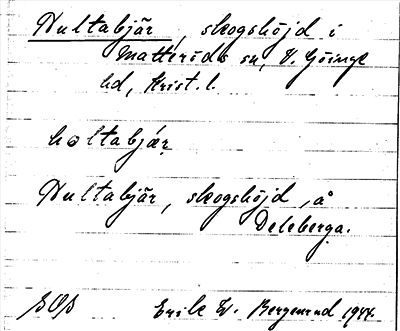 Hultabjär, skogshöjd i
Matteröds sn, V. Göinge
hd, Krist. l.
hultabjær
Hultabjär, skogshöjd, å
Deleberga.
SOS Erik W. Bergenrud 1944.